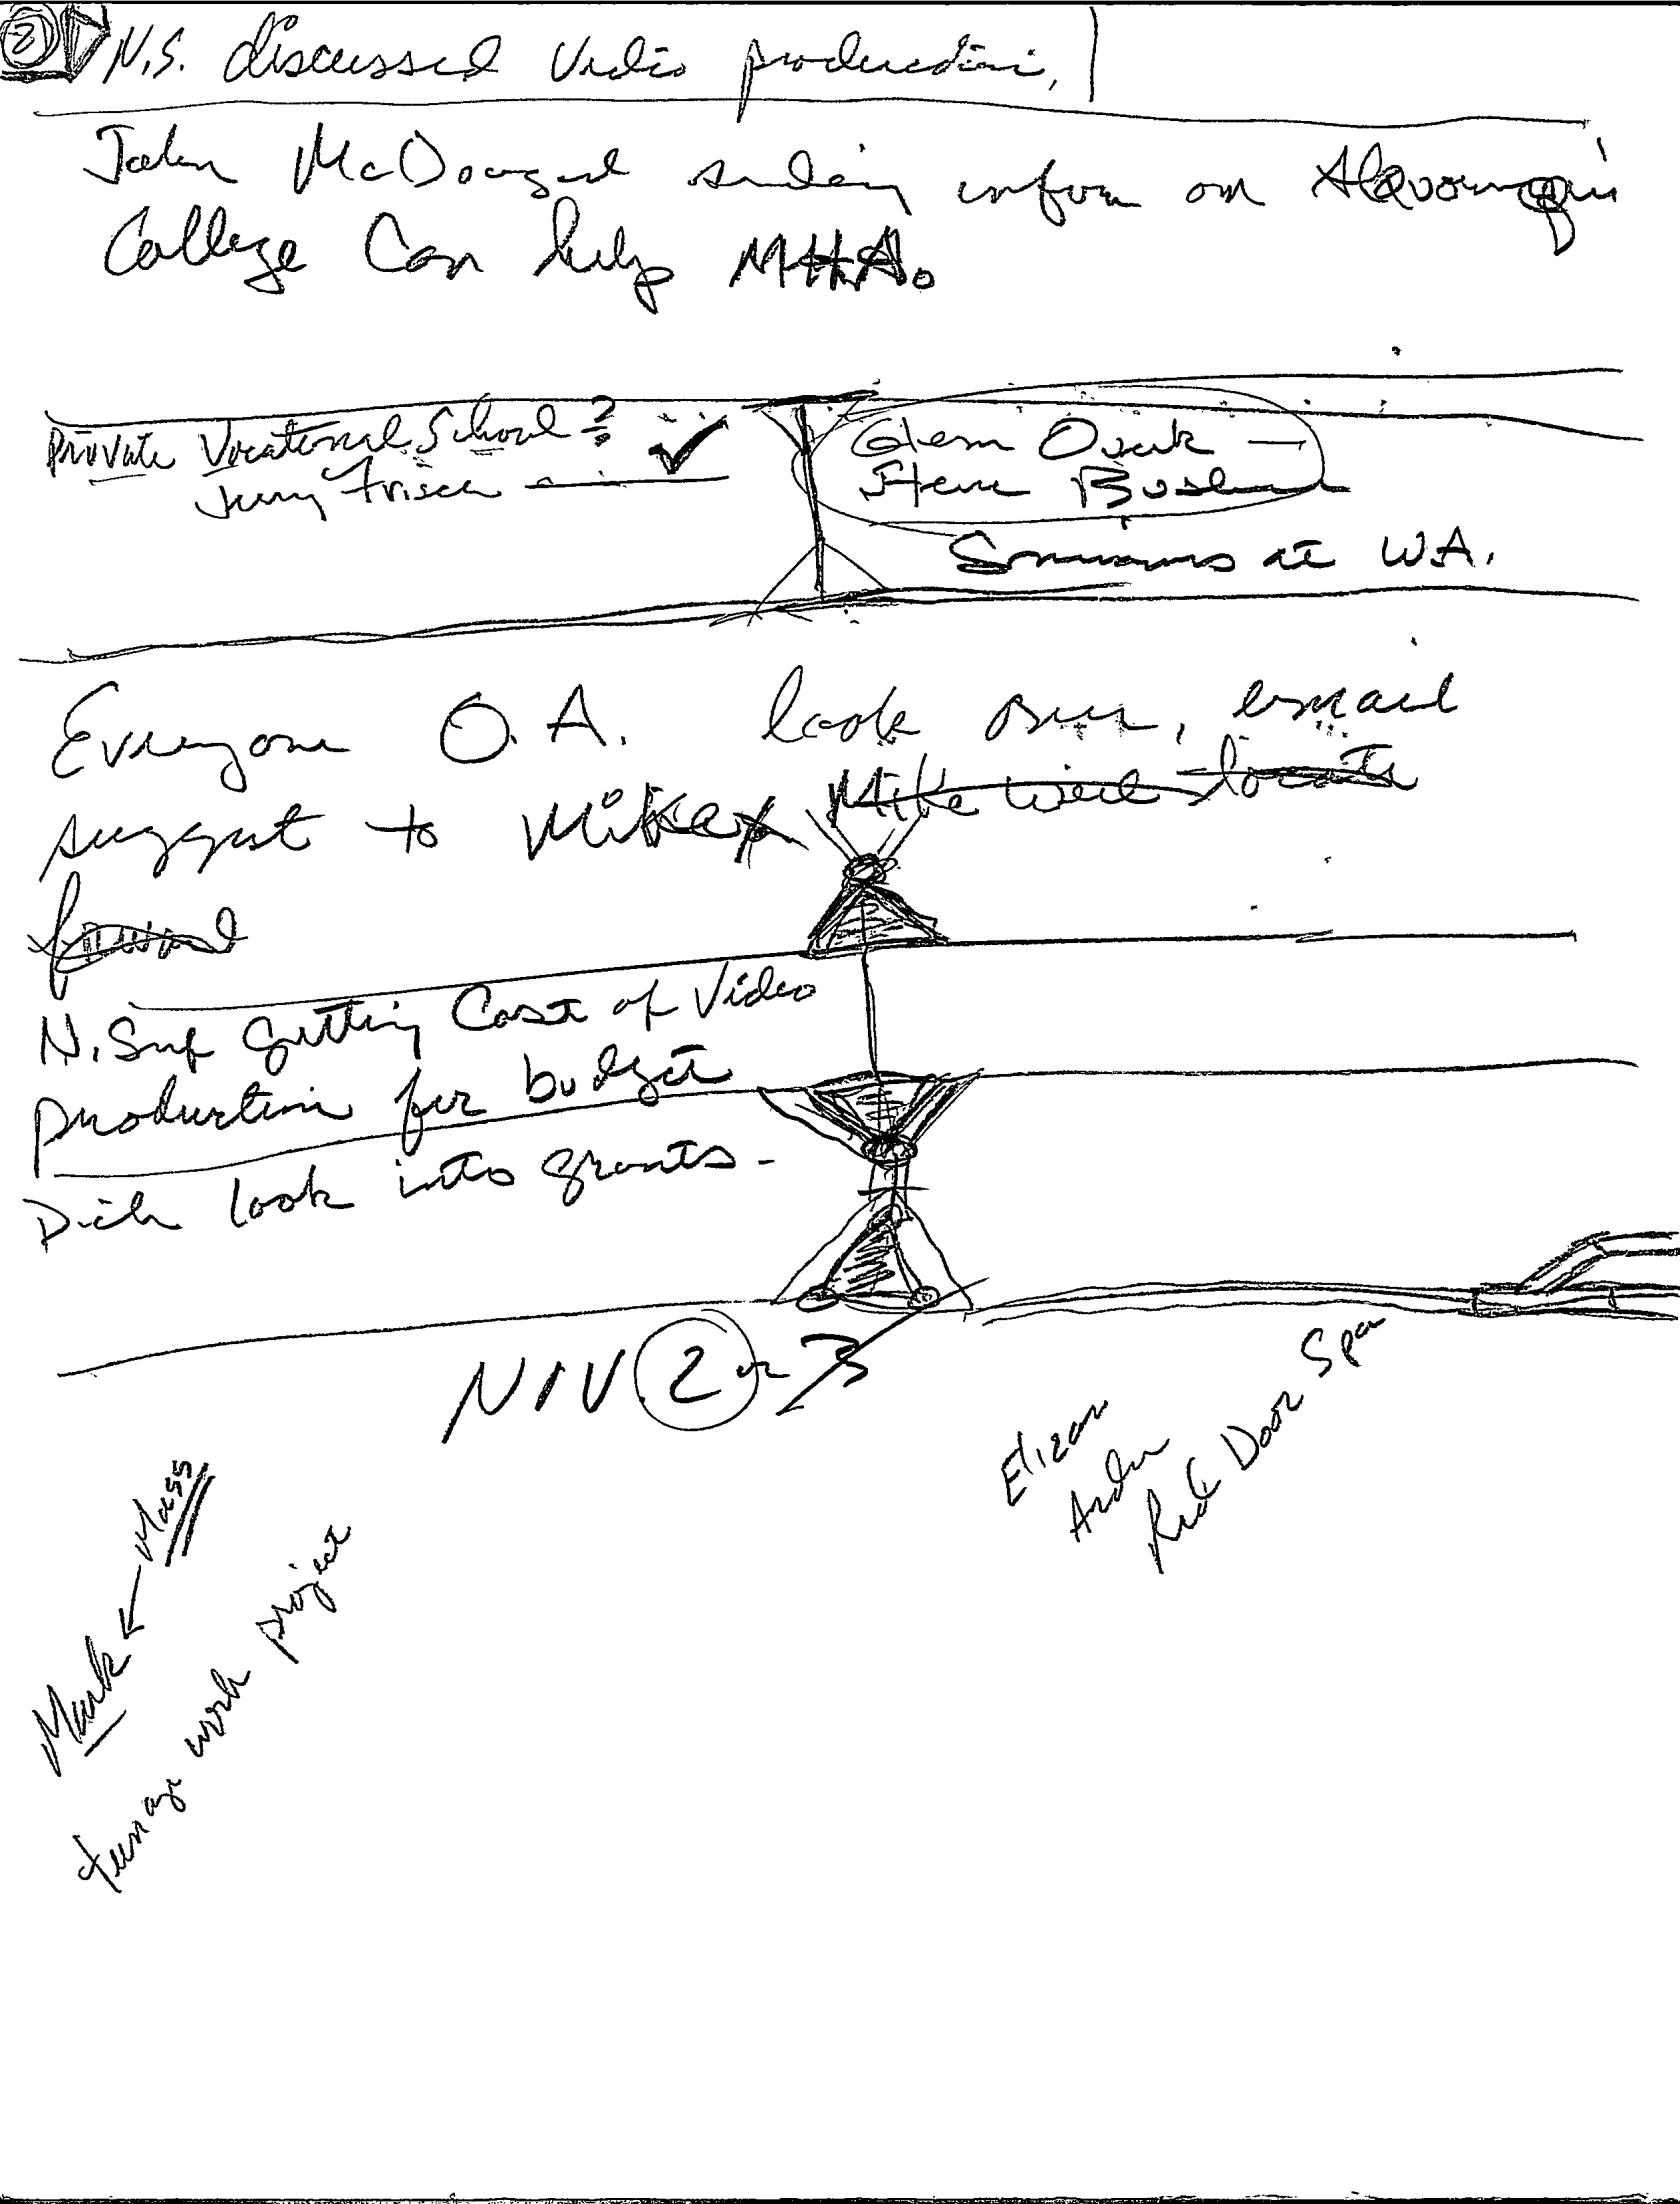 2 N.S. discussed Video production,
John McDougal sending inform on
College Can help MHA.
Private Vocational School?
Jerry Frisca
Glenn
Steve
at W.A.
Everyone O.A. look over, email
suggest to Mike Mike will locate
forward
N. Sup getting Cost of Video
production for budget
Dick look into grants.
NOV 2 or 3
Elizan
Arden
Red Door Spa
Mark ← Mass
teenage work project